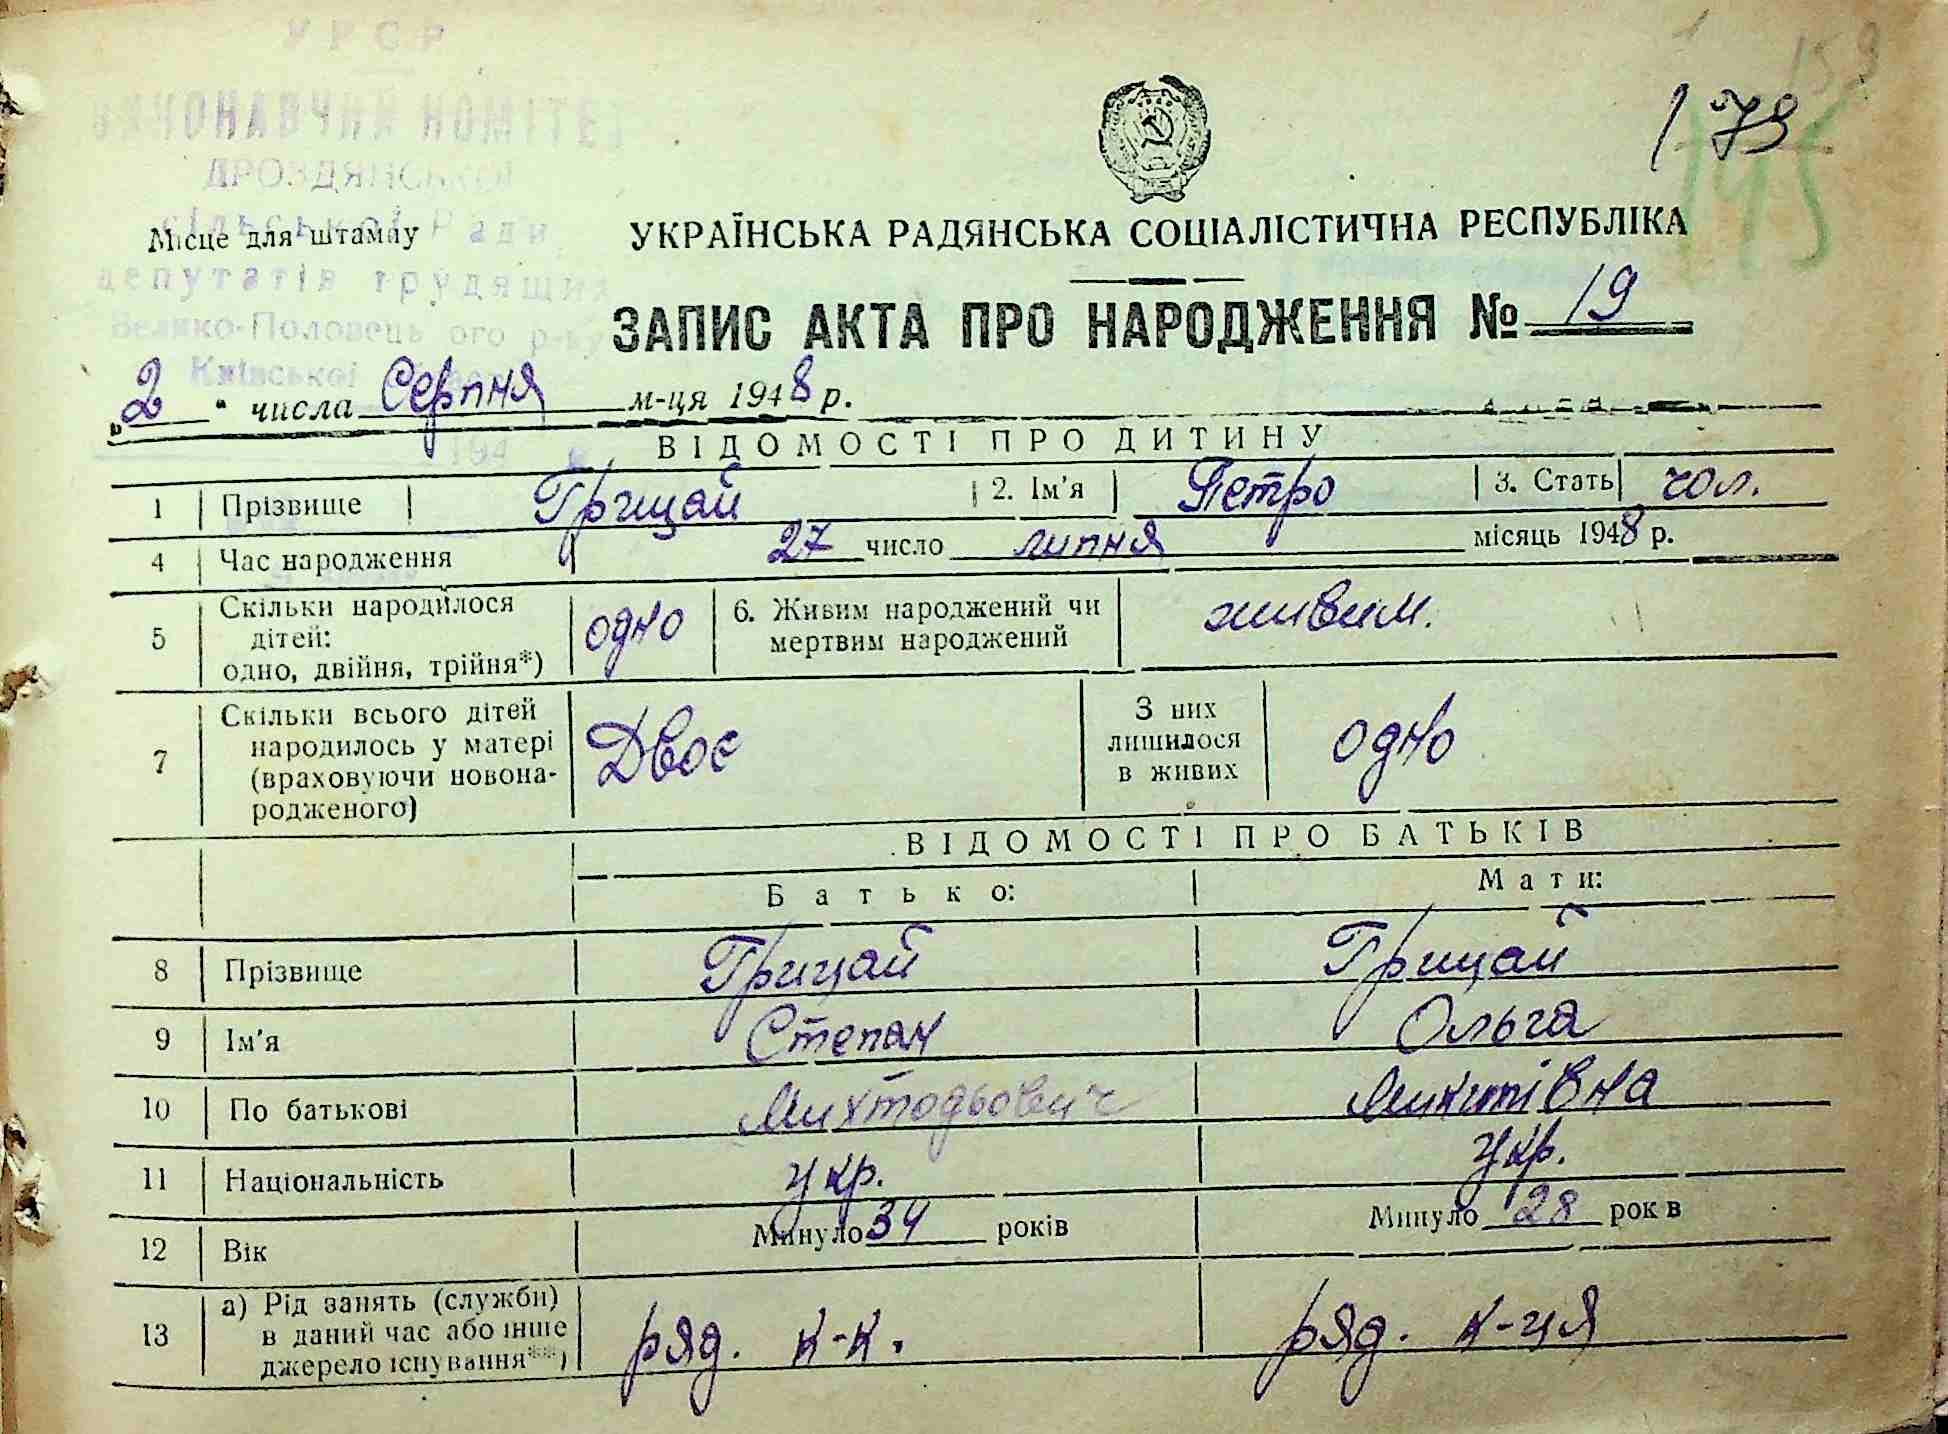 УРСР
ВИКОНАВЧИЙ КОМІТЕТ
ДРОЗДЯНСЬКОЇ
сільської Ради
депутатів трудящих
Велико-Половець ого р-ну
Київської
194
159
179
195
Місце для штампу
УКРАЇНСЬКА РАДЯНСЬКА СОЦІАЛІСТИЧНА РЕСПУБЛІКА
ЗАПИС АКТА ПРО НАРОДЖЕННЯ № 19
„2“ числа Серпня м-ця 1948 р.
ВІДОМОСТІ ПРО ДИТИНУ
1 Прізвище Грицай 2. Ім'я Петро 3. Стать чол.
4 Час народження 27 число липня місяць 1948 р.
5 Скільки народилося дітей: одно, двійня, трійня*) одно 6. Живим народжений чи мертвим народжений живим.
7 Скільки всього дітей народилось у матері (враховуючи новона-родженого) Двоє З них лишилося в живих одно
ВІДОМОСТІ ПРО БАТЬКІВ
Батько: Мати:
8 Прізвище Грицай Грицай
9 Ім'я Степан Ольга
10 По батькові Михтодьович Микитівна
11 Національність укр. укр.
12 Вік Минуло 34 років Минуло 28 рок в
13 а) Рід занять (служби) в даний час або інше джерело існування**) ряд. к-к. ряд. к-ця